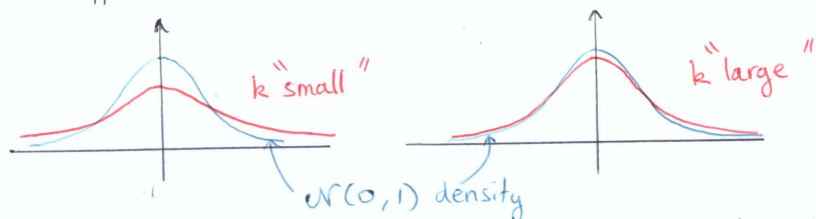 k "small"
k "large"
N(0,1) density